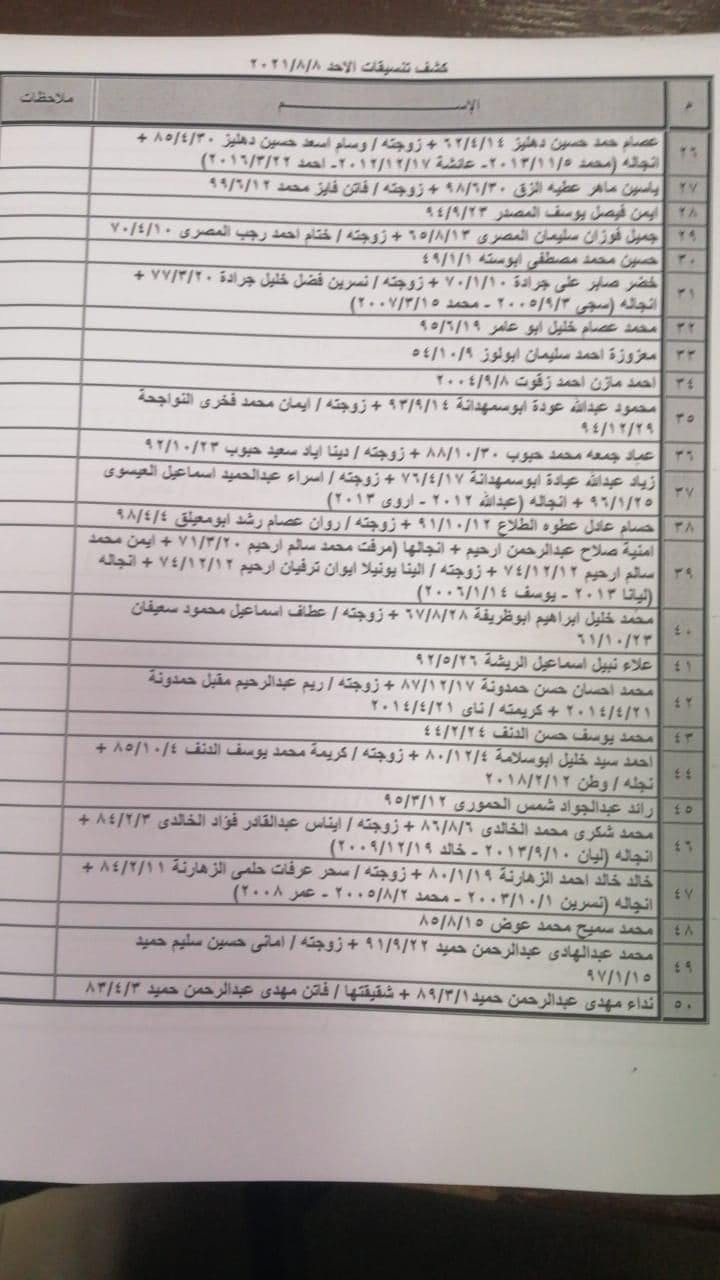 كشف تنسيقات الاحد ٢٠٢١/٨/٨
م الإســـــم ملاحظات
٢٦ عصام حمد حسين دهليز ٦٢/٤/١٤ + زوجته / وسام اسعد حسين دهليز ٨٥/٤/٣٠ +
انجاله (محمد ٢٠١٣/١١/٥ - عائشة ٢٠١٢/١٢/١٧ - احمد ٢٠١٦/٣/٢٢)
٢٧ ياسين ماهر عطيه الزق ٩٨/٦/٣٠ + زوجته / فاتن فايز محمد ٩٩/٦/١٢
٢٨ ايمن فيصل يوسف المصدر ٩٤/٩/٢٣
٢٩ جميل فوزان سليمان المصرى ٦٥/٨/١٣ + زوجته / ختام احمد رجب المصرى ٧٠/٤/١٠
٣٠ حسين محمد مصطفى ابوسته ٤٩/١/١
٣١ خضر صابر على جرادة ٧٠/١/١٠ + زوجته / نسرين فضل خليل جرادة ٧٧/٣/٢٠ +
انجاله (سجى ٢٠٠٥/٩/٣ - محمد ٢٠٠٧/٣/١٥)
٣٢ محمد عصام خليل ابو عامر ٩٥/٦/١٩
٣٣ معزوزة احمد سليمان ابولوز ٥٤/١٠/٩
٣٤ احمد مازن احمد زقوت ٢٠٠٤/٩/٨
٣٥ محمود عبدالله عودة ابوسمهدانة ٩٣/٩/١٤ + زوجته / ايمان محمد فخرى النواجحة
٩٤/١٢/٢٩
٣٦ عماد جمعه محمد حبوب ٨٨/١٠/٣٠ + زوجته / دينا اياد سعيد حبوب ٩٢/١٠/٢٣
٣٧ زياد عبدالله عيادة ابوسمهدانة ٧٦/٤/١٧ + زوجته / اسراء عبدالحميد اسماعيل العيسوى
٩٦/١/٢٥ + انجاله (عبدالله ٢٠١٢ - اروى ٢٠١٣)
٣٨ حسام عادل عطوه الطلاع ٩١/١٠/١٢ + زوجته / روان عصام رشد ابومعيلق ٩٨/٤/٤
٣٩ امنية صلاح عبدالرحمن ارحيم + انجالها (مرفت محمد سالم ارحيم ٧١/٣/٢٠ + ايمن محمد
سالم ارحيم ٧٤/١٢/١٢ + زوجته / الينا يونيلا ايوان ترفيان ارحيم ٧٤/١٢/١٢ + انجاله
(ليانا ٢٠١٣ - يوسف ٢٠٠٦/١/١٤)
٤٠ محمد خليل ابراهيم ابوظريفة ٦٧/٨/٢٨ + زوجته / عطاف اسماعيل محمود سعيفان
٦١/١٠/٢٣
٤١ علاء نبيل اسماعيل الريشة ٩٢/٥/٢٦
٤٢ محمد احسان حسن حمدونة ٨٧/١٢/١٧ + زوجته / ريم عبدالرحيم مقبل حمدونة
٢٠١٤/٤/٢١ + كريمته / ناى ٢٠١٤/٤/٢١
٤٣ محمد يوسف حسن الدنف ٤٤/٢/٢٤
٤٤ احمد سيد خليل ابوسلامة ٨٠/١٢/٤ + زوجته / كريمة محمد يوسف الدنف ٨٥/١٠/٤ +
نجله / وطن ٢٠١٨/٢/١٢
٤٥ رائد عبدالجواد شمس الحمورى ٩٥/٣/١٢
٤٦ محمد شكرى محمد الخالدى ٨٦/٨/٦ + زوجته / ايناس عبدالقادر فؤاد الخالدى ٨٤/٢/٣ +
انجاله (ليان ٢٠١٣/٩/١٠ - خالد ٢٠٠٩/١٢/١٩)
٤٧ خالد خالد احمد الزهارنة ٨٠/١/١٩ + زوجته / سحر عرفات حلمى الزهارنة ٨٤/٢/١١ +
انجاله (نسرين ٢٠٠٣/١٠/١ - محمد ٢٠٠٥/٨/٢ - عمر ٢٠٠٨)
٤٨ محمد سميح محمد عوض ٨٥/٨/١٥
٤٩ محمد عبدالهادى عبدالرحمن حميد ٩١/٩/٢٢ + زوجته / امانى حسين سليم حميد
٩٧/١/١٥
٥٠ نداء مهدى عبدالرحمن حميد ٨٩/٣/١ + شقيقتها / فاتن مهدى عبدالرحمن حميد ٨٣/٤/٣